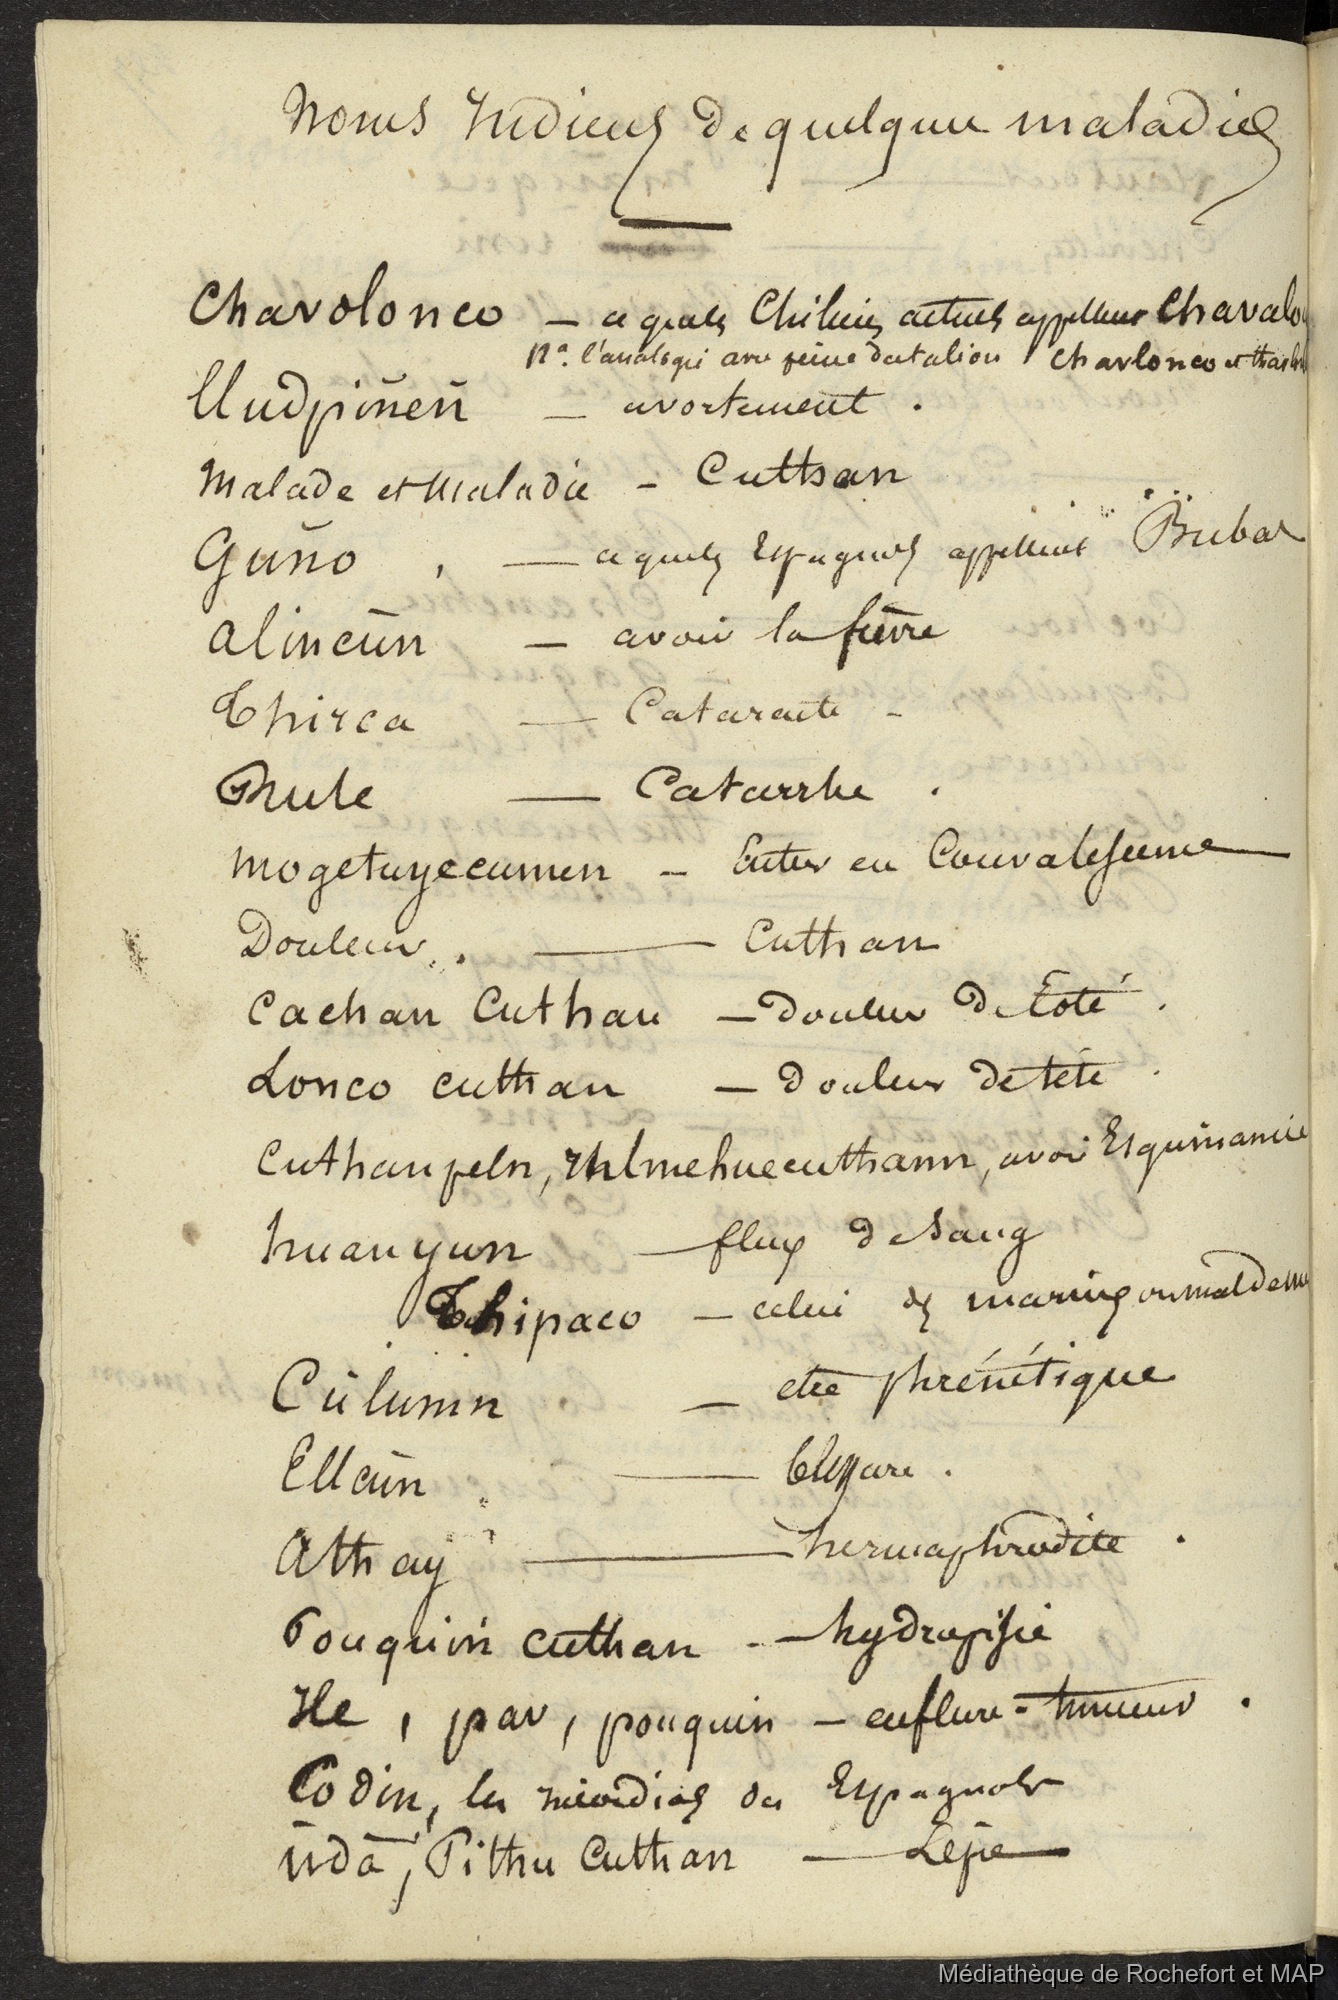 Noms Indiens de quelques maladies
Chavolonco – ce que les Chiliens actuels appellent Chavalo
Na. l'analogie avec Charlonco et
lludpiñeñ – avortement .
Malade et Maladie – Cuthan
Guño , – ce que les Espagnols appellent Bubas
alincün – avoir la fièvre
Thirca – Cataracte –
Chule – Catarrhe .
mogetuyecumen – Entrer en Convalescence
Douleur . – Cuthan
Cachan Cuthan – Douleur de Coté .
Lonco cuthan – Douleur de tête .
Cuthanpeln, avoir Esquinancie
huanyun – flux de sang
Thipaco – celui des
Cülumn – etre phrénétique
Ellcün – blessure .
Athay – hermaphrodite .
Pouquiñ cuthan – hydropisie
Ile , pav , pouquin – enflure = tumeur .
Codin, les incordios des Espagnols
üdā, Pithu Cuthan – Lèpre
Médiathèque de Rochefort et MAP